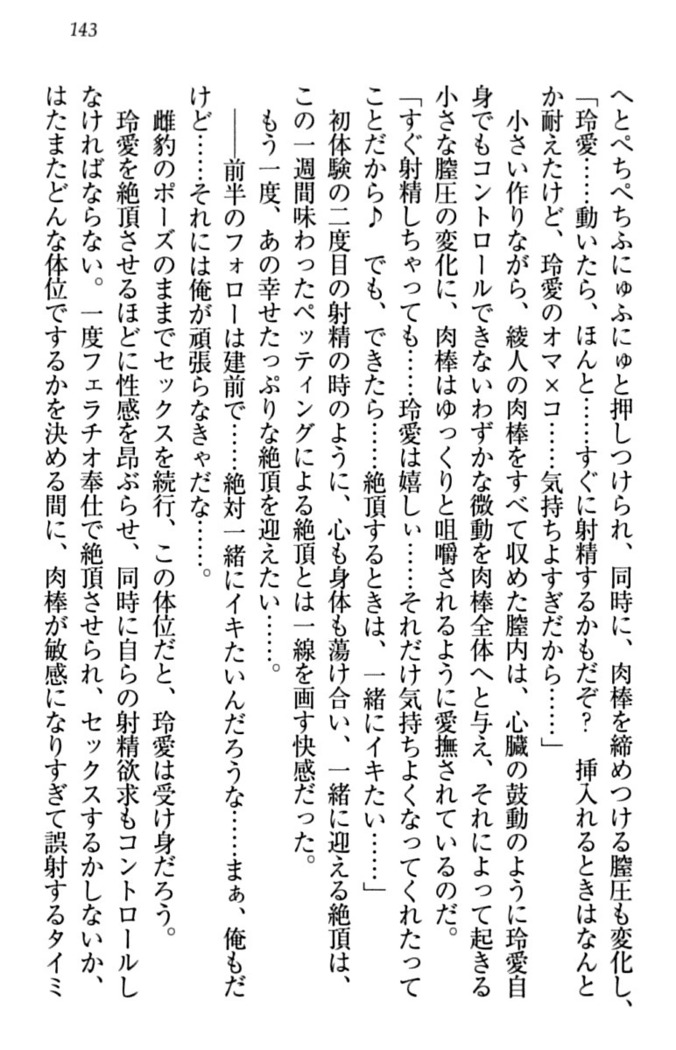 143
へとぺちぺちふにゅふにゅと押しつけられ、同時に、肉棒を締めつける膣圧も変化し、
「玲愛……動いたら、ほんと……すぐに射精するかもだぞ？　挿入れるときはなんと
か耐えたけど、玲愛のオマ×コ……気持ちよすぎだから……」
　小さい作りながら、綾人の肉棒をすべて収めた膣内は、心臓の鼓動のように玲愛自
身でもコントロールできないわずかな微動を肉棒全体へと与え、それによって起きる
小さな膣圧の変化に、肉棒はゆっくりと咀嚼されるように愛撫されているのだ。
「すぐ射精しちゃっても……玲愛は嬉しぃ……それだけ気持ちよくなってくれたって
ことだから♪　でも、できたら……絶頂するときは、一緒にイキたい……」
　初体験の二度目の射精の時のように、心も身体も蕩け合い、一緒に迎える絶頂は、
この一週間味わったペッティングによる絶頂とは一線を画す快感だった。
　もう一度、あの幸せたっぷりな絶頂を迎えたい……。
　――前半のフォローは建前で……絶対一緒にイキたいんだろうな……まぁ、俺もだ
けど……それには俺が頑張らなきゃだな……。
　雌豹のポーズのままでセックスを続行、この体位だと、玲愛は受け身だろう。
　玲愛を絶頂させるほどに性感を昂ぶらせ、同時に自らの射精欲求もコントロールし
なければならない。一度フェラチオ奉仕で絶頂させられ、セックスするかしないか、
はたまたどんな体位でするかを決める間に、肉棒が敏感になりすぎて誤射するタイミ